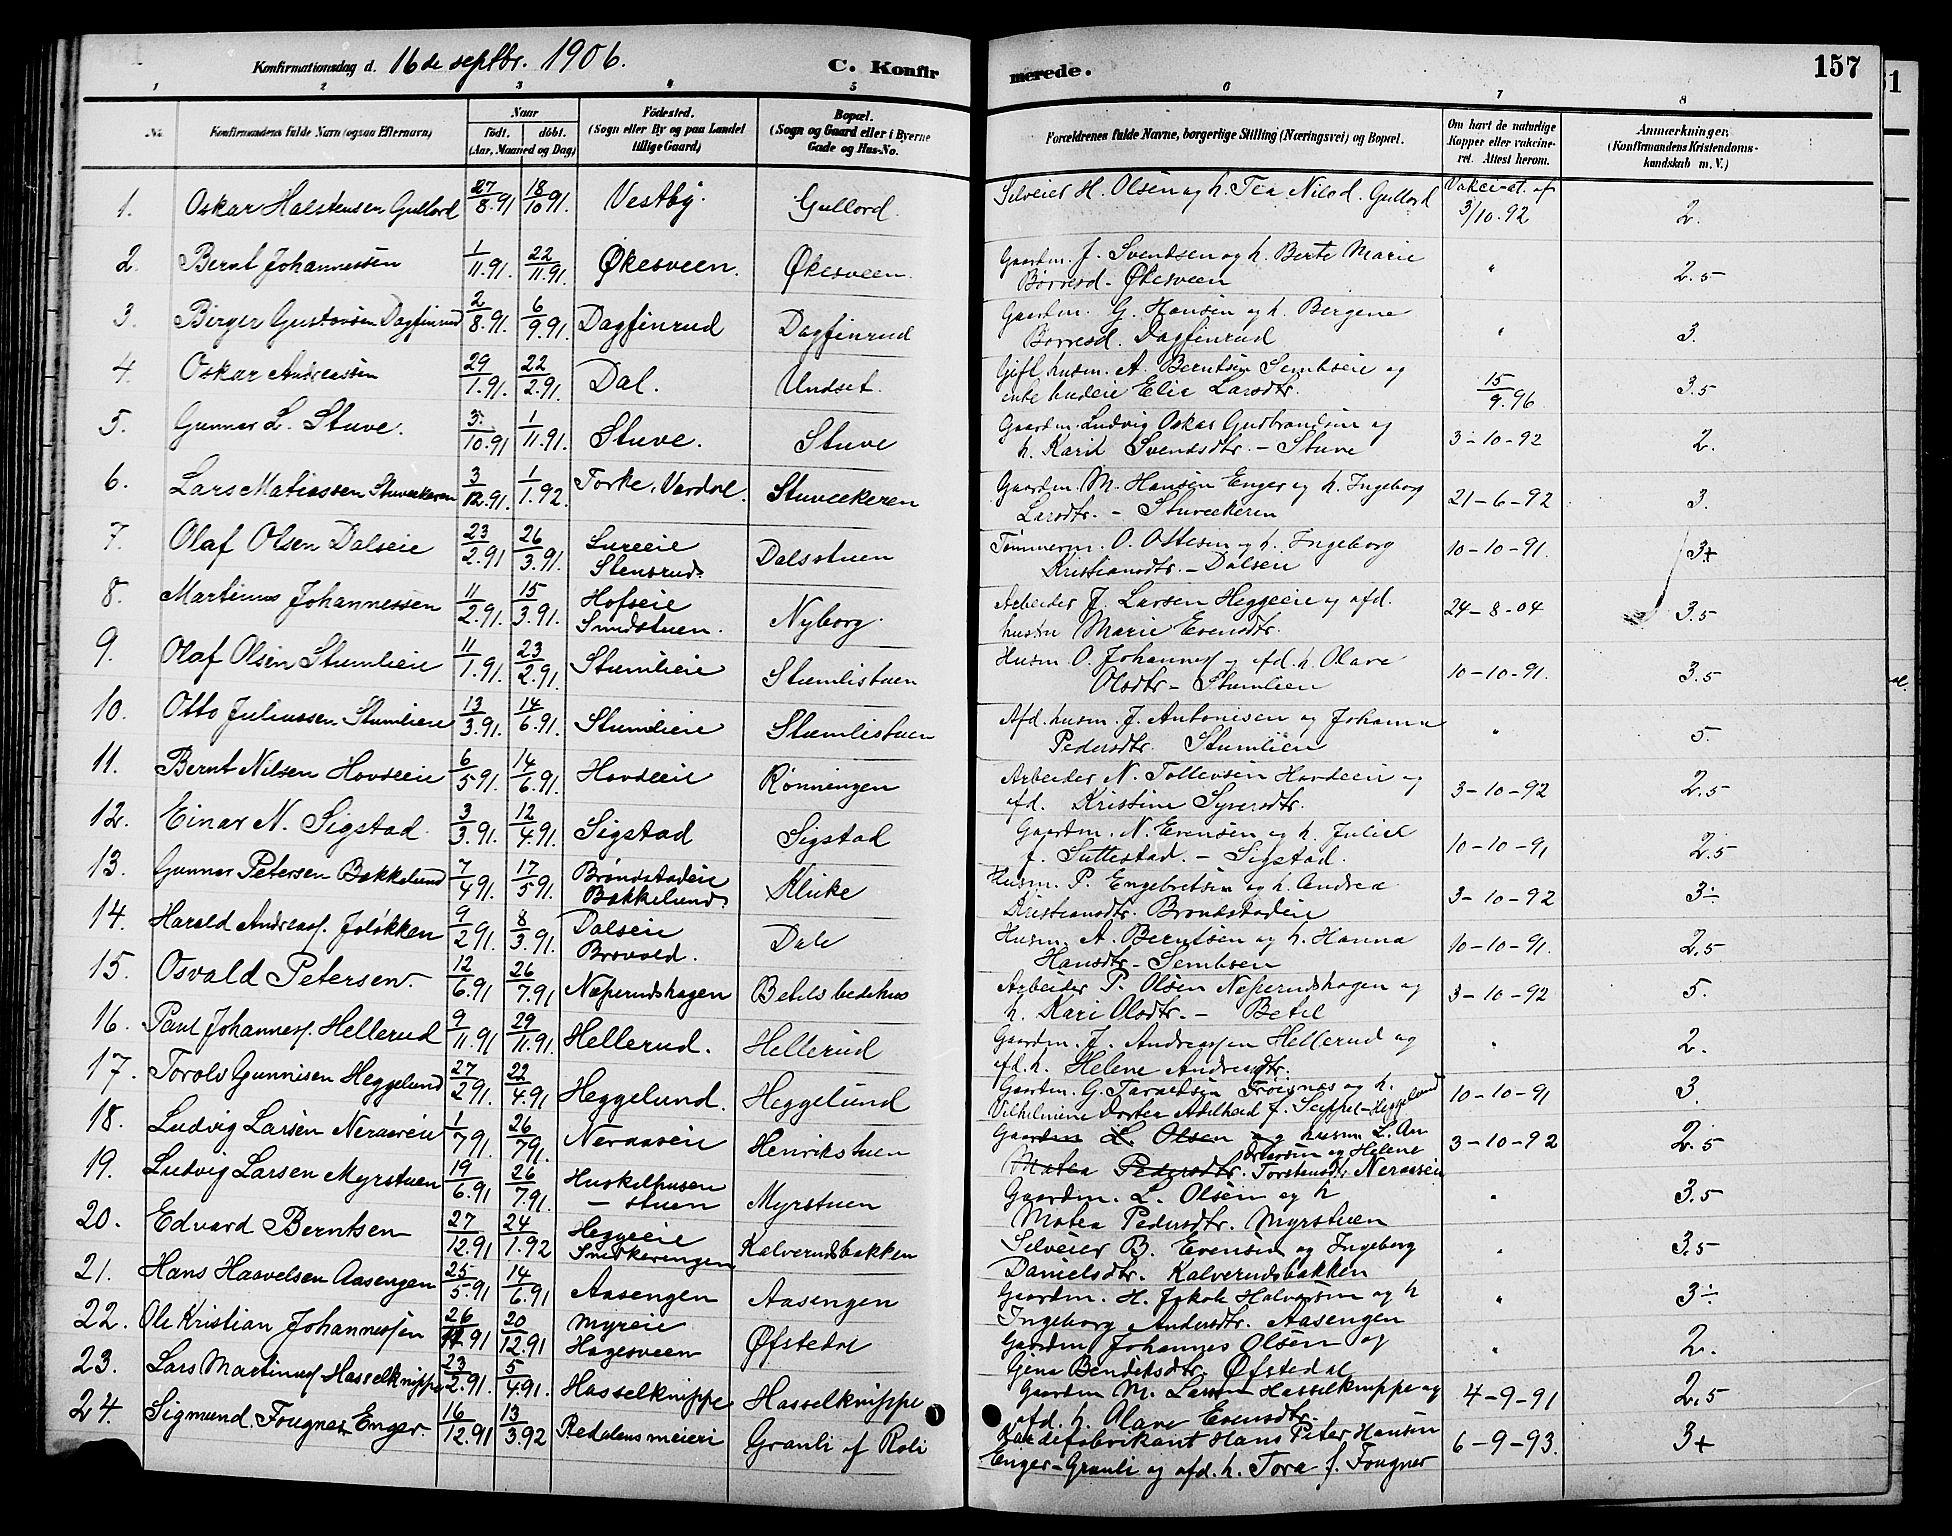 Konfirmationsdag d. 16de septbr. 1906. C. Konfirmerede. 157
1 2 3 4 5 6 7 8
No. Konfirmandens fulde Navn (ogsaa Efternavn) Naar født. døbt. (Aar, Maaned og Dag) Fødested. (Sogn eller By og paa Landet tillige Gaard.) Bopæl. (Sogn og Gaard eller i Byerne Gade og Hus-No. Forældrenes fulde Navne, borgerlige Stilling (Næringsvei) og Bopæl. Om havt de naturlige Kopper eller vaccineret. Attest herom. Anmærkninger. (Konfirmandens Kristendomskundskab m. V.)
1. Oskar Halstensen Gullord 27/8.91 18/10 91. Vestby. Gullord. Selveier H. Olsen og h. Tea Nilsd. Gullord 3/10.92 2.
2. Bernt Johannessen 1/11.91. 22/11.91. Økesveen. Økesveen. Gaardm. J. Svendsen og h. Berte Marie
Børresd. - Økesveen " 2.5
3. Birger Gustavsen Dagfinrud 2/8.91. 6/9.91. Dagfinrud Dagfinrud Gaardm. G. Hansen og h. Bergene
Børresd. Dagfinrud " 3.
4. Oskar Andreassen 29/1.91. 22/2.91. Dal. Undset. Gift husm. A. Berntsen Sembseie og
enke Elie Larsdtr. 15/9.96 3.5
5. Gunnar L. Stuve. 3/10.91 1/11.91. Stuve. Stuve Gaardm. Ludvig Oskar Gudbrandsen og
h. Karil Svendsdtr. - Stuve 3-10-92 2.
6. Lars Matiassen Stuveekeren 3/12.91. 1/1.92. Torke, Vardal. Stuveekeren Gaardm. M. Hansen Enger og h. Ingeborg
Larsdtr. - Stuveekeren 21-6-92 3.
7. Olaf Olsen Dalseie 23/2.91. 26/3.91. Sureeie
Stensrud. Dalsstuen Tømmerm. O. Ottesen og h. Ingeborg
Kristiansdtr. - Dalsen 10-10-91. 3+
8. Martinus Johannessen 11/2.91. 15/3.91. Hofseie
Smedstuen. Nyborg. Arbeider J. Larsen Heggeeie og afd.
hustru Marie Evensdtr. 24-8-04 3.5
9. Olaf Olsen Stumlieie 11/1.91. 23/2.91. Stumlieie Stumlistuen Husm. O. Johannesf og afd. h. Olave
Olsdtr - Stumlien 10-10-91. 3.5
10. Otto Juliussen Stumlieie 13/3.91. 14/6.91. Stumlieie Stumlistuen Afd. husm. J. Antonisen og Johanna
Pedersdtr. Stumlien " 5.
11. Bernt Nilsen Hovseie 6/5 91. 14/6.91. Hovdeie Rønningen Arbeider N. Tollevsen Hovdeie og
afd. Kristine Syversdtr. 3-10-92 2.5
12. Einar N. Sigstad. 3/3.91. 12/4.91. Sigstad Sigstad Gaardm. N. Evensen og h. Julie
f. Suttestad. - Sigstad. 10-10-91 2.5
13. Gunnar Petersen Bakkelund 7/4 91. 17/5 91. Brøndstadeie
Bakkelund Kluke Husm. P. Engebretsen og h. Andrea
Kristiansdtr. Brøndstadeie 3-10-92 3÷
14. Harald Andreasf. Joløkken 9/2 91. 8/3.91. Dalseie
Brovold. Dale Husm. A. Berntsen og h. Hanna
Hansdtr - Sembseie 10-10-91. 2.5
15. Osvald Petersen. 12/6.91 26/7.91 Næperudshagen Betels bedehus Arbeider P. Olsen Næperudshagen og
h. Kari Olsdtr. - Betel 3-10-92 5.
16. Paul Johannesf. Hellerud 9/11.91 29/11.91. Hellerud. Hellerud Gaardm. J. Andreassen Hellerud og
afd. h. Helene Andreasdtr. " 2.
17. Torolv Gunnisen Heggelund 27/2 91. 22/4.91 Heggelund. Heggelund Gaardm. G. Taraldsen Frøisnes og h.
Vilhelmine Dortea Adelheid f. Seyppel - Heggelund 10-10-91 3.
18. Ludvig Larsen Neraaeie 1/7 91. 26/7 91. Neraaseie Henrikstuen Gaardm L. Olsen og husm L. An
dersen og Helene
Matea Pedersdtr. Torstensdtr Neraaseie 3-10-92 2.5
19. Ludvig Larsen Myrstuen 19/6.91 26/7.91. Huskelhusen
- stuen Myrstuen Gaardm. L. Olsen og h
Matea Pedersdtr. Myrstuen " 3.5
20. Edvard Berntsen 27/12.91 24/1.92 Heggeeie
Smedkerengen Kalverudsbakken Selveier B. Evensen og Ingeborg
Danielsdtr. Kalverudsbakken " 3.5
21. Hans Haavelsen Aasengen 25/5.91 14/6.91 Aasengen Aasengen Gaardm. H. Jakob Halvorsen og h
Ingeborg Andersdtr. Aasengen " 3÷
22. Ole Kristian Johannessen 26/11.91 20/12.91 Myreie
Hagesveen Øfstedal Gaardm Johannes Olsen og
Gina Bendiksdtr. Øfstedal " 2.
23. Lars Martinusf. Hasselknippe 23/2.91. 5/4.91. Hasselknippe Hasselknippe Gaardm M. Larsen Hasselknippe og
afd. h. Olave Evensdtr. 4-9-91 2.5
24. Sigmund Fougner Enger. 16/12.91 13/3.92 Redalens meieri Granli af Roli Kardefabrikant Hans Peter Hansen
Enger - Granli og afd. h. Tora f. Fougner 6-9-93. 3+